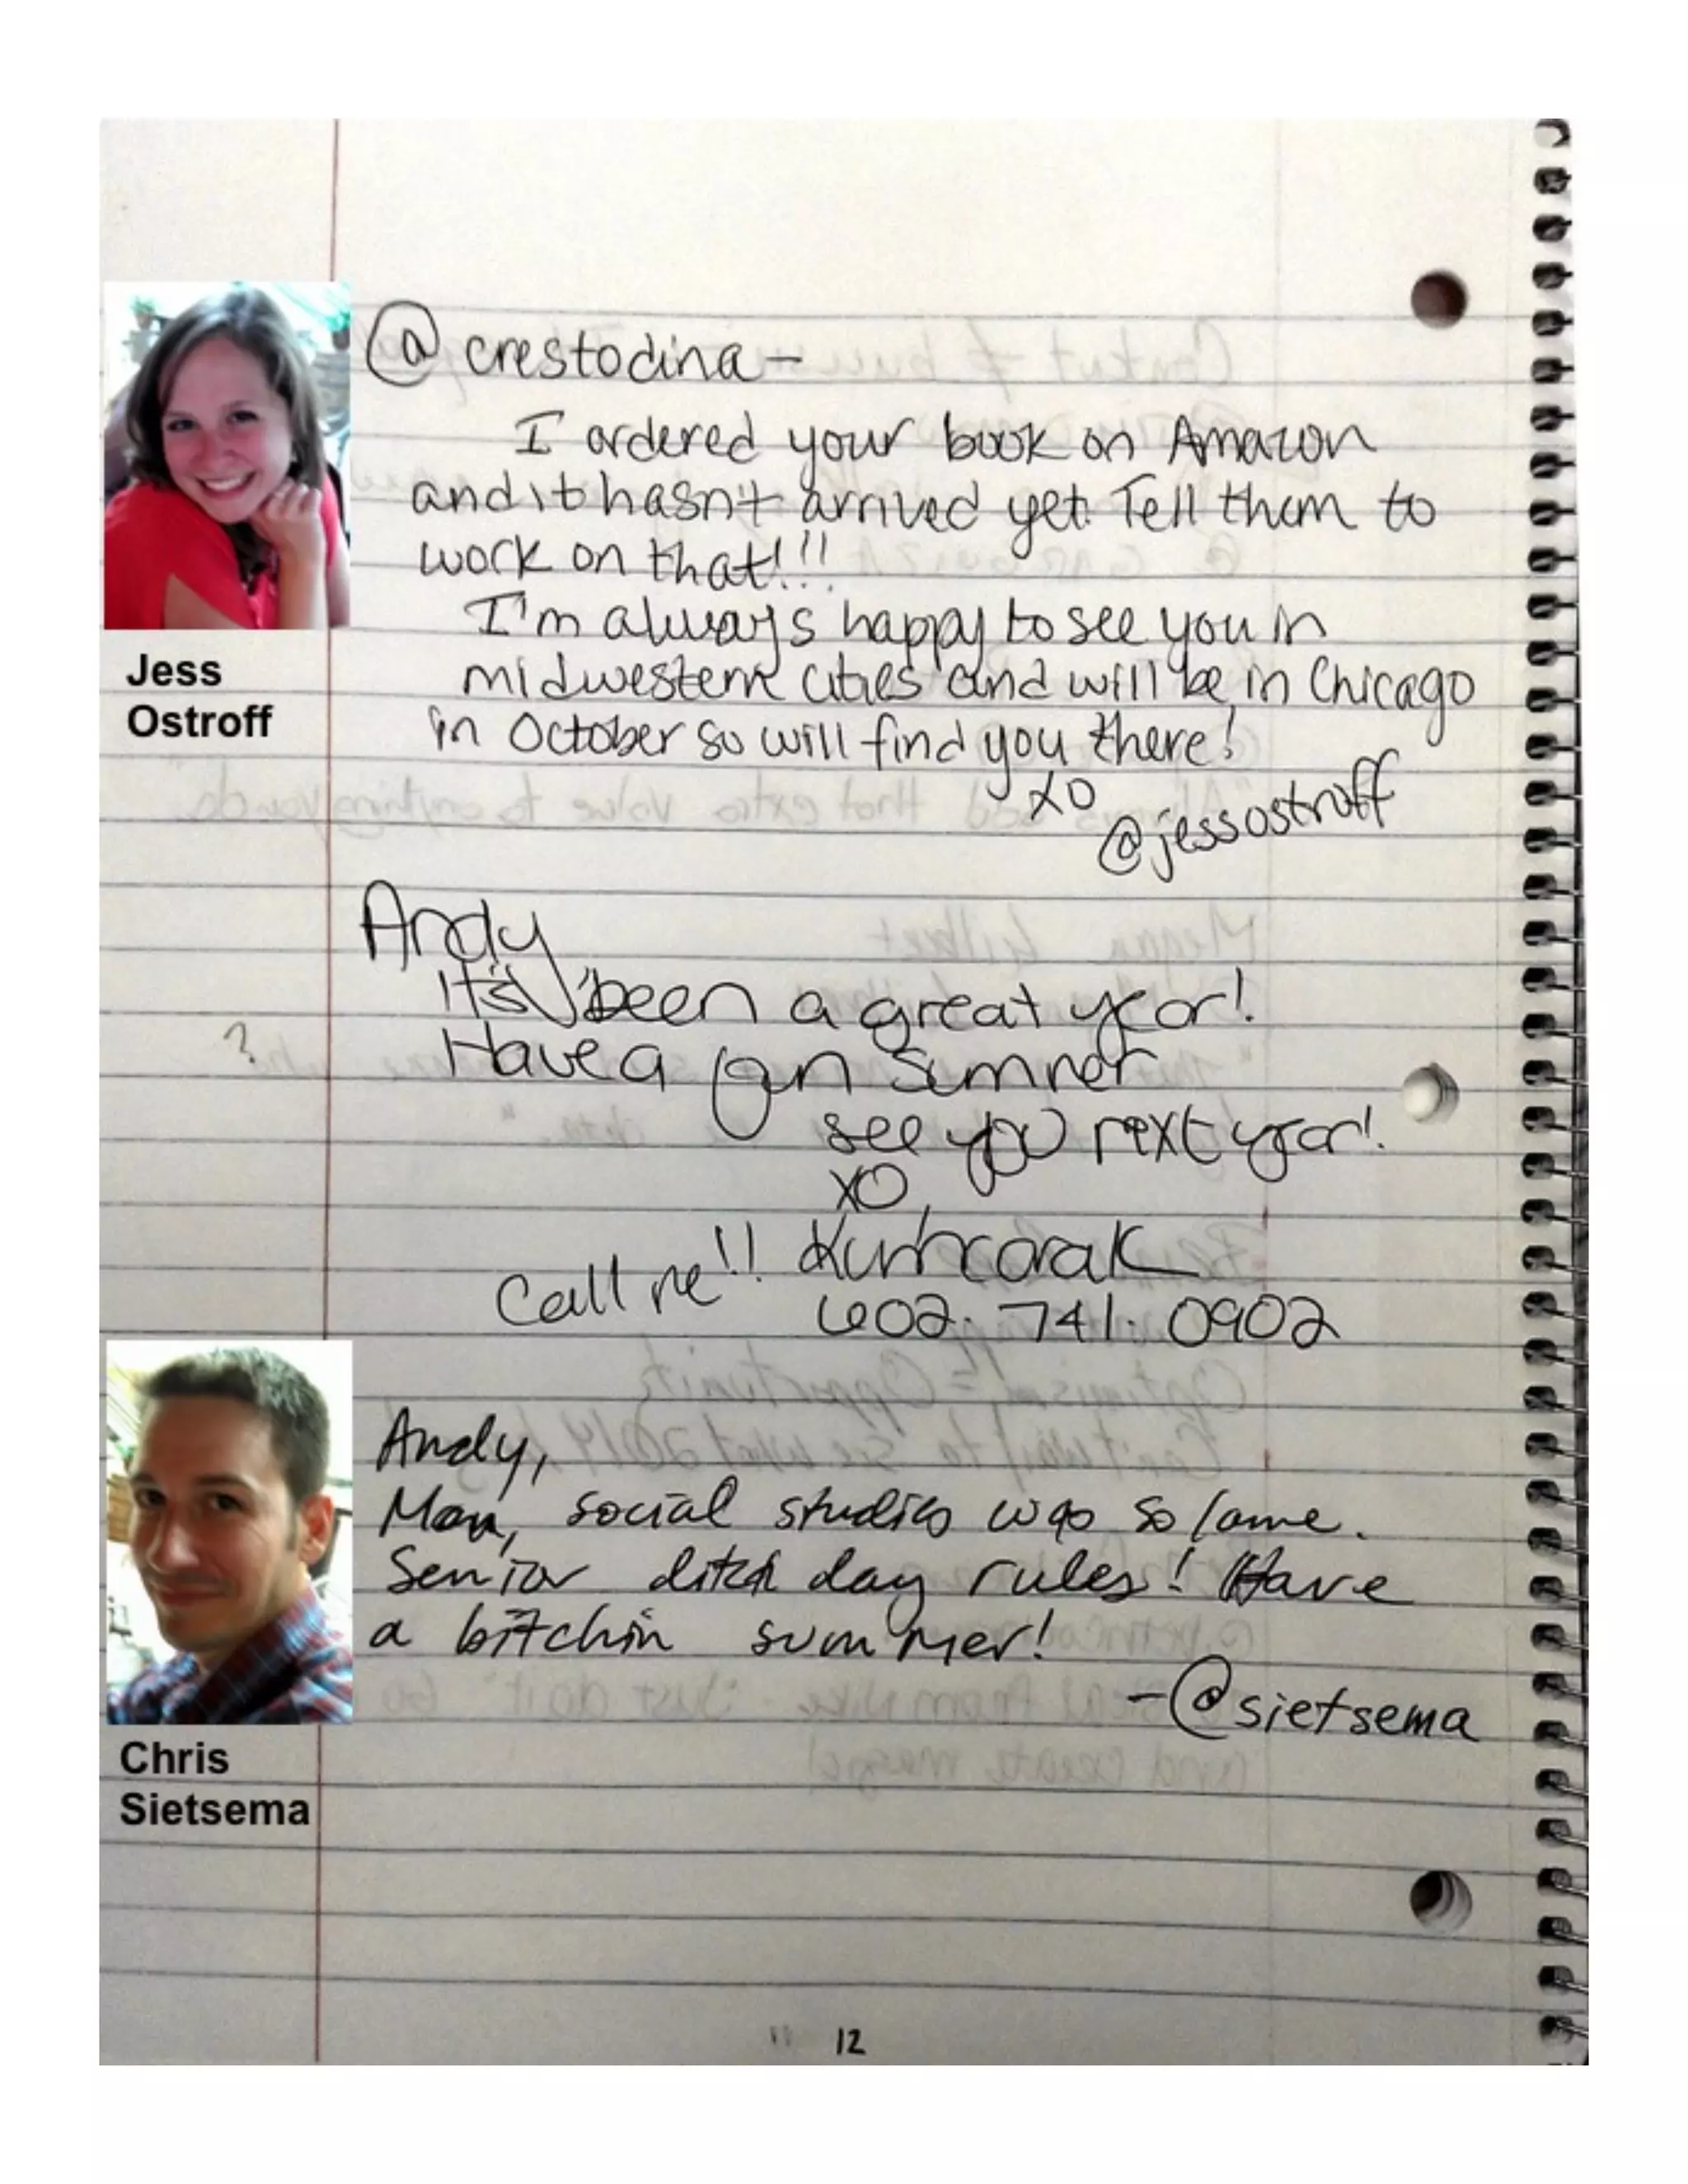 @crestodina-
I ordered your book on Amazon
and it hasn't arrived yet. Tell them to
work on that!!!
I'm always happy to see you in
midwestern cities and will be in Chicago
in October so will find you there!
XO
@jessostroff
Jess
Ostroff
Andy
It's been a great year!
?
Have a fun summer
see you next year!
XO,
Call me!!
602. 741. 0902
Andy,
Man, social studies was so lame.
Senior ditch day rules! Have
a bitchin summer!
-@sietsema
Chris
Sietsema
12